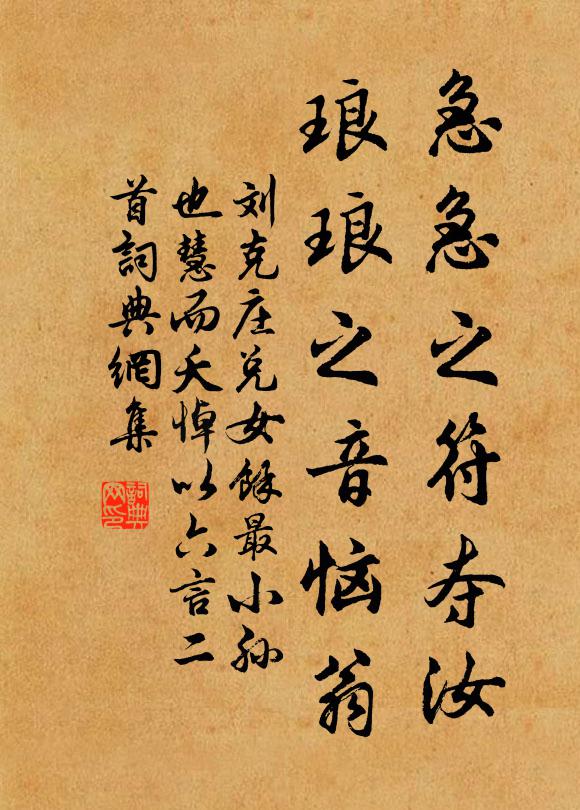 急急之符夺汝
琅琅之音恼翁
刘克庄兑女馀最小孙
也慧而夭悼以六言二
首詞典網集
詞典
网印